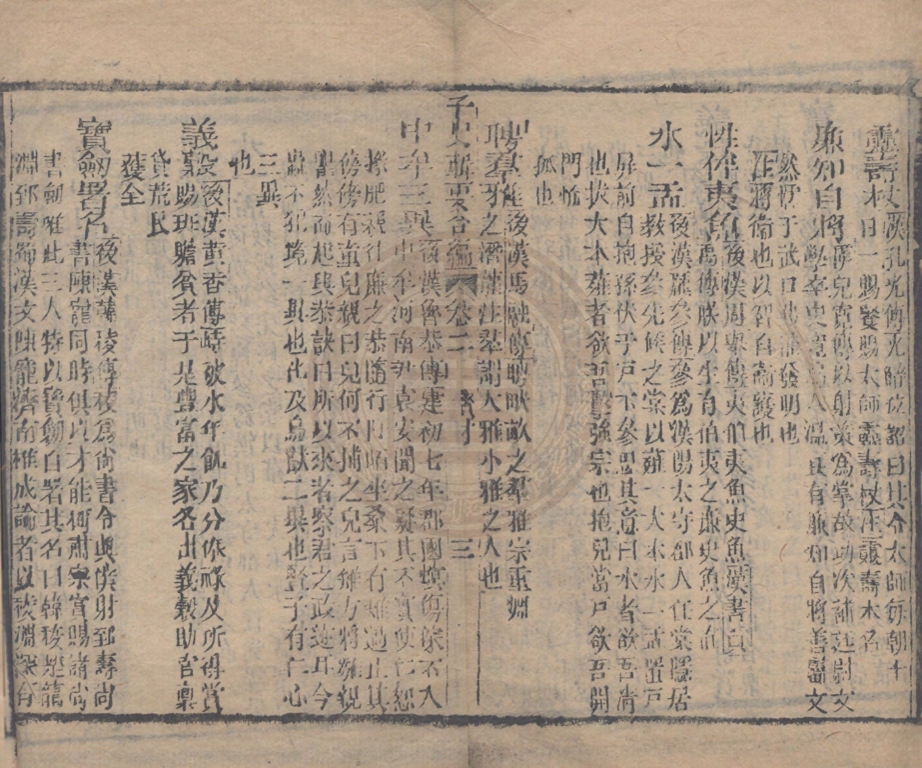 靈壽杖漢孔光傳光陪位詔曰其令太師毋朝十
日一賜餐賜太師靈壽杖注靈壽木名
廉知自將漢兒寬傳以射策為掌故功次補廷尉文
學卒史寬為人溫良有廉知自將善屬文
然懦于武口弗能發明也
注將衛也以智自衛護也
性侔夷魚後漢周舉傳夷伯夷魚史魚
馮傳朕以生有伯夷之廉史魚之直
水一盂後漢龐參傳參為漢陽太守郡人任棠隱居
教授參先候之棠以薤一大本水一盂置戶
屏前自抱孫伏于戶下參思其意曰水者欲吾清
也拔大本薤者欲吾擊強宗也抱兒當戶欲吾開
門恤
孤也
後漢馬融傳聘畎畝之羣雅宗重淵
之潛龍注羣謂大雅小雅之人也
子史輯要合編 卷二 三
中牟三異後漢魯恭傳建初七年郡國螟傷稼不入
中牟河南尹袁安聞之疑其不實使仁恕
掾肥親往廉之恭隨行阡陌坐桑下有雉過止其
傍傍有童兒親曰兒何不捕之兒言雉方將雛親
瞿然而起與恭訣曰所以來者察君之政迹耳今
蟲不犯境一異也化及鳥獸二異也豎子有仁心
三異
也
義穀後漢黃香傳時被水年飢乃分俸祿及所得賞
賜班贍貧者于是豐富之家各出義穀助官稟
貸荒民
獲全
寶劍署名後漢韓稜傳稜為尚書令與僕射郅壽尚
書陳寵同時俱以才能稱肅宗嘗賜諸尚
書劍唯此三人特以寶劍自署其名曰韓稜楚龍
淵郅壽蜀漢文陳寵濟南椎成論者以稜淵深有